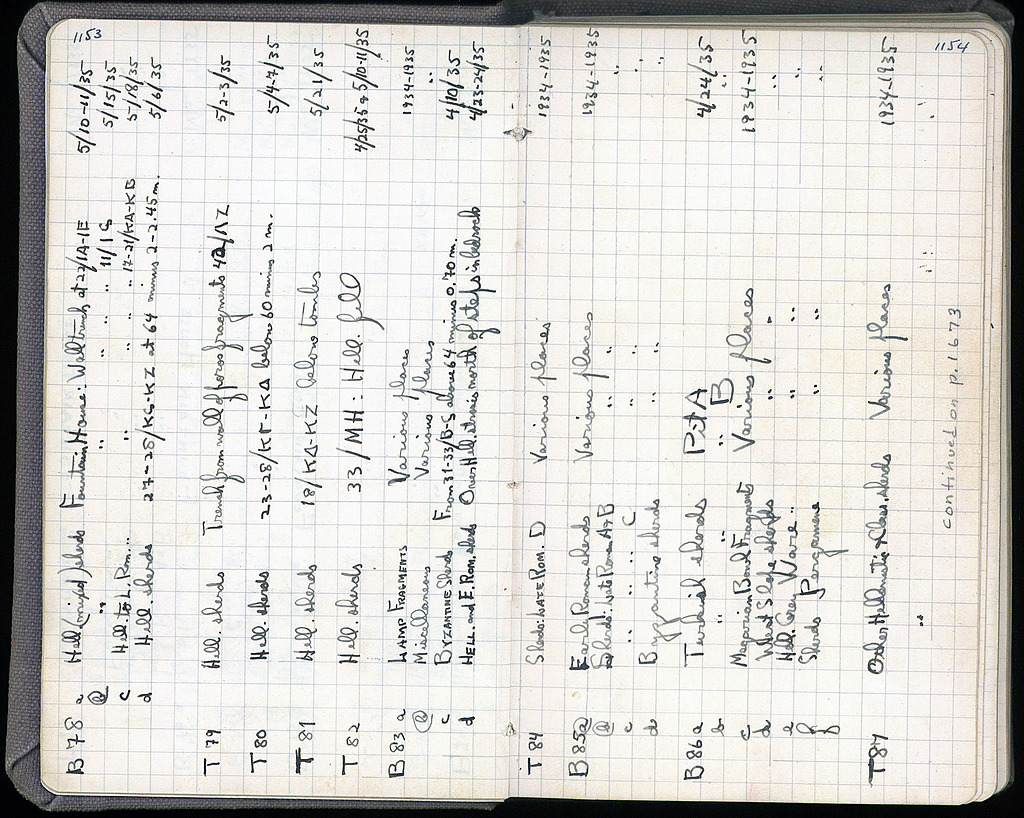 1153
B 78 a Hell (mixed) sherds Fountain House: Wall trench at 22/ΙΑ-ΙΕ 5/10-11/35
b " " " " 11/ΙS 5/15/35
c Hell. to L. Rom. " " " " 17-21/ΚΑ-ΚΒ 5/18/35
d Hell. sherds 27-28/ΚS-ΚΖ at 64 minus 2-2.45 m. 5/6/35
T 79 Hell. sherds Trench from wall of poros fragments 42/ΛΖ 5/2-3/35
T 80 Hell. sherds 23-28/ΚΓ-ΚΔ below 60 minus 2 m. 5/4-7/35
T 81 Hell. sherds 18/ΚΔ-ΚΖ below tombs 5/21/35
T 82 Hell. sherds 33/ΜΗ: Hell. fill 4/25/35 & 5/10-11/35
B 83 a LAMP FRAGMENTS Various places 1934-1935
b Miscellaneous Various places "
c BYZANTINE Sherds From 31-33/Β-S above 64 minus 0.70 m. 4/10/35
d HELL. and E. ROM. sherds Over Hell. strais north of steps in bedrock 4/23-24/35
1154
T 84 Sherds: LATE ROM. D Various places 1934-1935
B 85 a Early Roman sherds Various places 1934-1935
b Sherds: Late Roman A & B " " "
c " " " C " " "
d Byzantine sherds " " "
B 86 a Turkish sherds Pit A 4/24/35
b " " " B "
c Megarian Bowl Fragments Various places 1934-1935
d West Slope sherds " " "
e Hell. Grey Ware " " " "
f Sherds Pergamene " " "
T 87 Other Hellenistic & Class. sherds Various places 1934-1935
continued on p. 1673